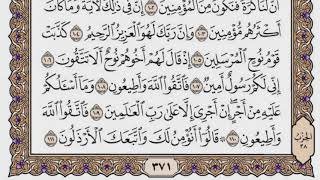 أَنَّ لَنَا كَرَّةً فَنَكُونَ مِنَ ٱلْمُؤْمِنِينَ ١٠٢ إِنَّ فِى ذَٰلِكَ لَـَٔايَةً وَمَا كَانَ
أَكْثَرُهُم مُّؤْمِنِينَ ١٠٣ وَإِنَّ رَبَّكَ لَهُوَ ٱلْعَزِيزُ ٱلرَّحِيمُ ١٠٤ كَذَّبَتْ
قَوْمُ نُوحٍ ٱلْمُرْسَلِينَ ١٠٥ إِذْ قَالَ لَهُمْ أَخُوهُمْ نُوحٌ أَلَا تَتَّقُونَ ١٠٦
إِنِّى لَكُمْ رَسُولٌ أَمِينٌ ١٠٧ فَٱتَّقُوا۟ ٱللَّهَ وَأَطِيعُونِ ١٠٨ وَمَآ أَسْـَٔلُكُمْ
عَلَيْهِ مِنْ أَجْرٍ إِنْ أَجْرِىَ إِلَّا عَلَىٰ رَبِّ ٱلْعَٰلَمِينَ ١٠٩ فَٱتَّقُوا۟ ٱللَّهَ
وَأَطِيعُونِ ١١٠ قَالُوٓا۟ أَنُؤْمِنُ لَكَ وَٱتَّبَعَكَ ٱلْأَرْذَلُونَ ١١١
الحزب
٣٨
٣٧١